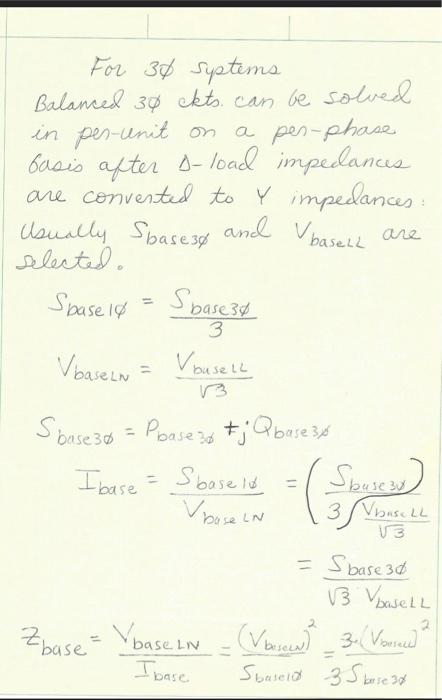 For 3φ Systems
Balanced 3φ ckts. can be solved
in per-unit on a per-phase
basis after Δ-load impedances
are converted to Y impedances:
Usually Sbase3φ and VbaseLL are
selected.
Sbase1φ = Sbase3φ / 3
VbaseLN = VbaseLL / √3
Sbase3φ = Pbase3φ + jQbase3φ
Ibase = Sbase1φ / VbaseLN = (Sbase3φ / 3) / (VbaseLL / √3)
= Sbase3φ / √3 VbaseLL
Zbase = VbaseLN / Ibase = (VbaseLN)² / Sbase1φ = 3·(VbaseLL)² / 3 Sbase3φ